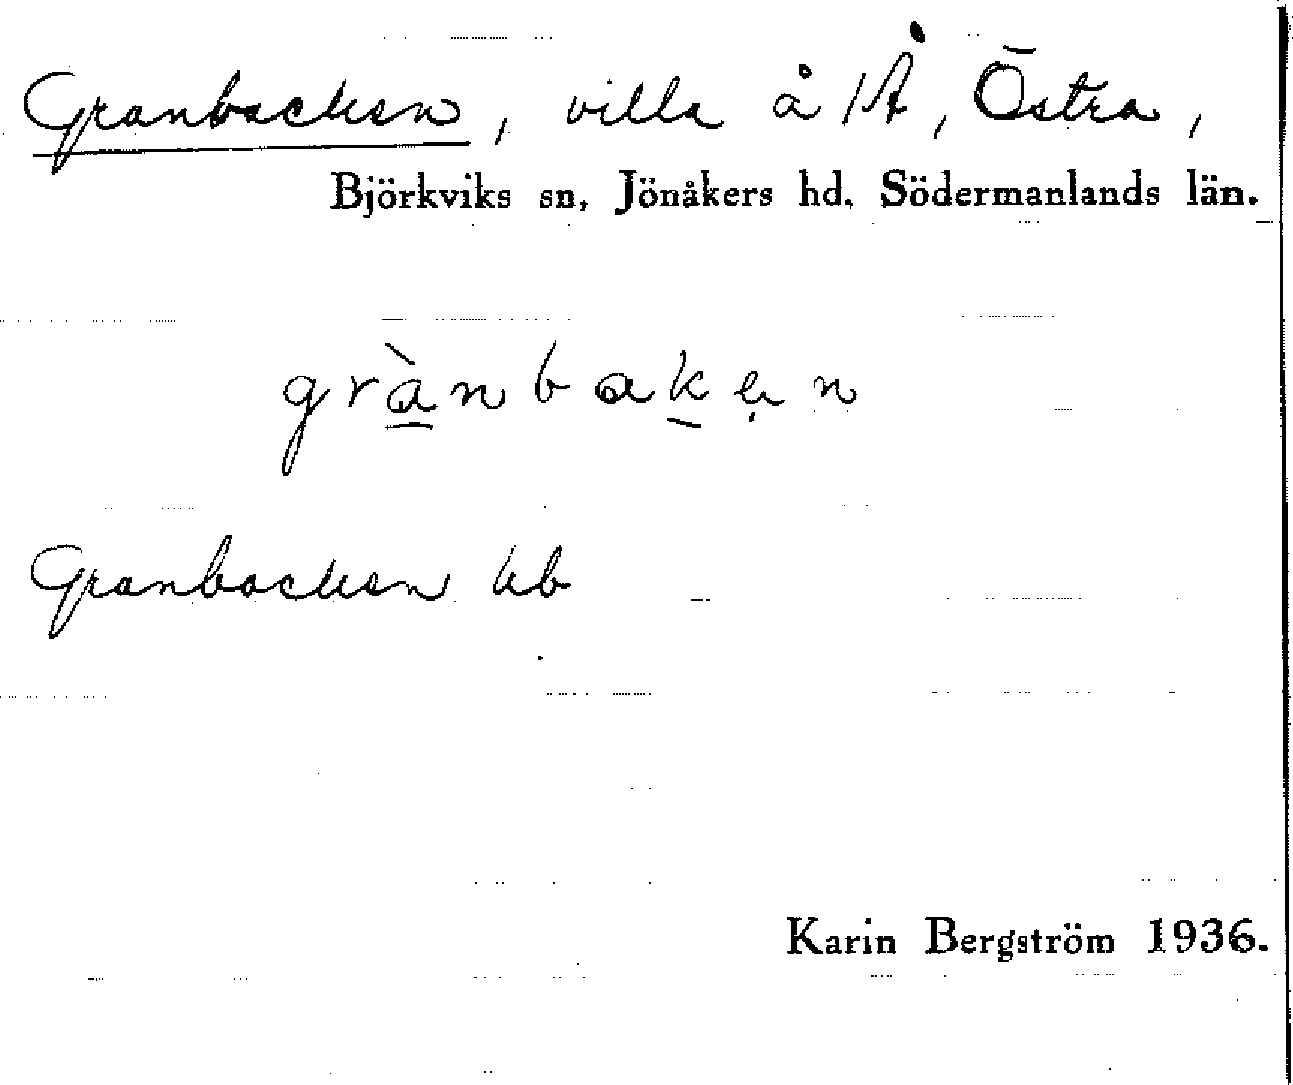 Granbacken, villa å 1 Å, Östra,
Björkviks sn, Jönåkers hd. Södermanlands län.
grànbaken
Granbacken hb
Karin Bergström 1936.